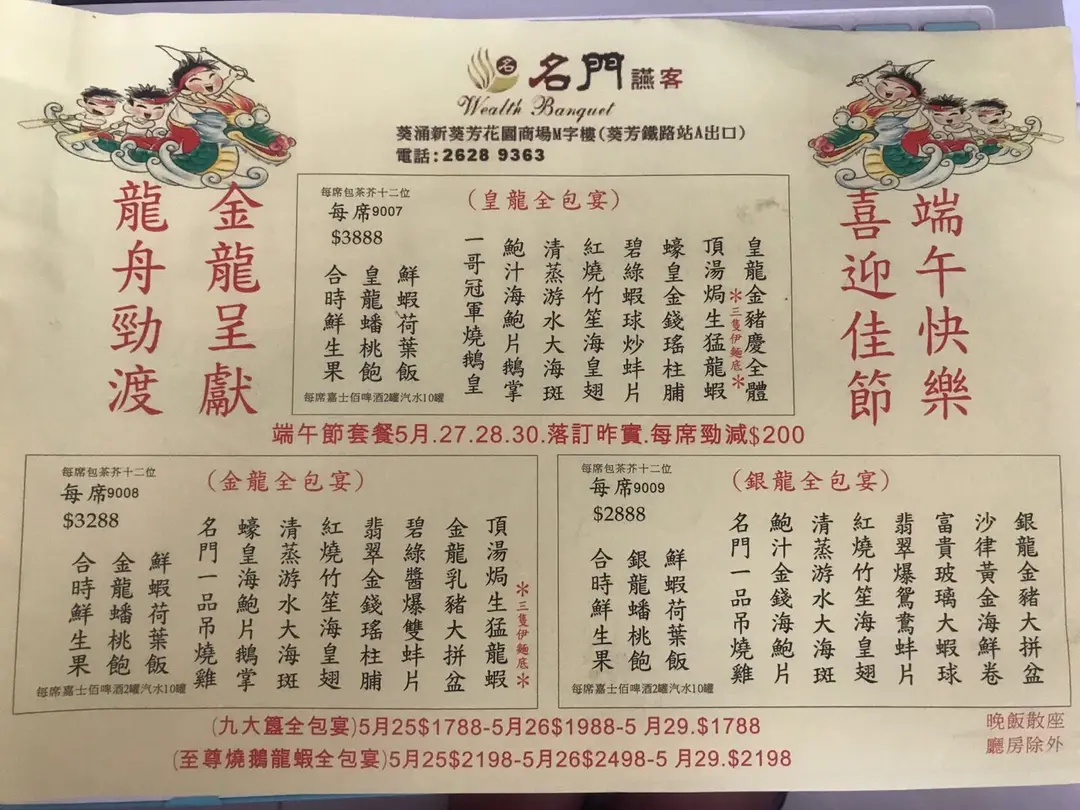 名 名門讌客
Wealth Banquet
葵涌新葵芳花園商場M字樓(葵芳鐵路站A出口)
電話:2628 9363
端午快樂
喜迎佳節
金龍呈獻
龍舟勁渡
每席包茶芥十二位
每席9007
$3888
(皇龍全包宴)
皇龍金豬慶全體
頂湯焗生猛龍蝦
*三隻伊麵底*
蠔皇金錢瑤柱脯
碧綠蝦球炒蚌片
紅燒竹笙海皇翅
清蒸游水大海斑
鮑汁海鮑片鵝掌
一哥冠軍燒鵝皇
鮮蝦荷葉飯
皇龍蟠桃飽
合時鮮生果
每席嘉士佰啤酒2罐汽水10罐
端午節套餐5月.27.28.30.落訂昨實.每席勁減$200
每席包茶芥十二位
每席9008
$3288
(金龍全包宴)
頂湯焗生猛龍蝦
*三隻伊麵底*
金龍乳豬大拼盆
碧綠醬爆雙蚌片
翡翠金錢瑤柱脯
紅燒竹笙海皇翅
清蒸游水大海斑
蠔皇海鮑片鵝掌
名門一品吊燒雞
鮮蝦荷葉飯
金龍蟠桃飽
合時鮮生果
每席嘉士佰啤酒2罐汽水10罐
每席包茶芥十二位
每席9009
$2888
(銀龍全包宴)
銀龍金豬大拼盆
沙律黃金海鮮卷
富貴玻璃大蝦球
翡翠爆鴛鴦蚌片
紅燒竹笙海皇翅
清蒸游水大海斑
鮑汁金錢海鮑片
名門一品吊燒雞
鮮蝦荷葉飯
銀龍蟠桃飽
合時鮮生果
每席嘉士佰啤酒2罐汽水10罐
(九大簋全包宴)5月25$1788-5月26$1988-5 月29.$1788
(至尊燒鵝龍蝦全包宴)5月25$2198-5月26$2498-5 月29.$2198
晚飯散座
廳房除外